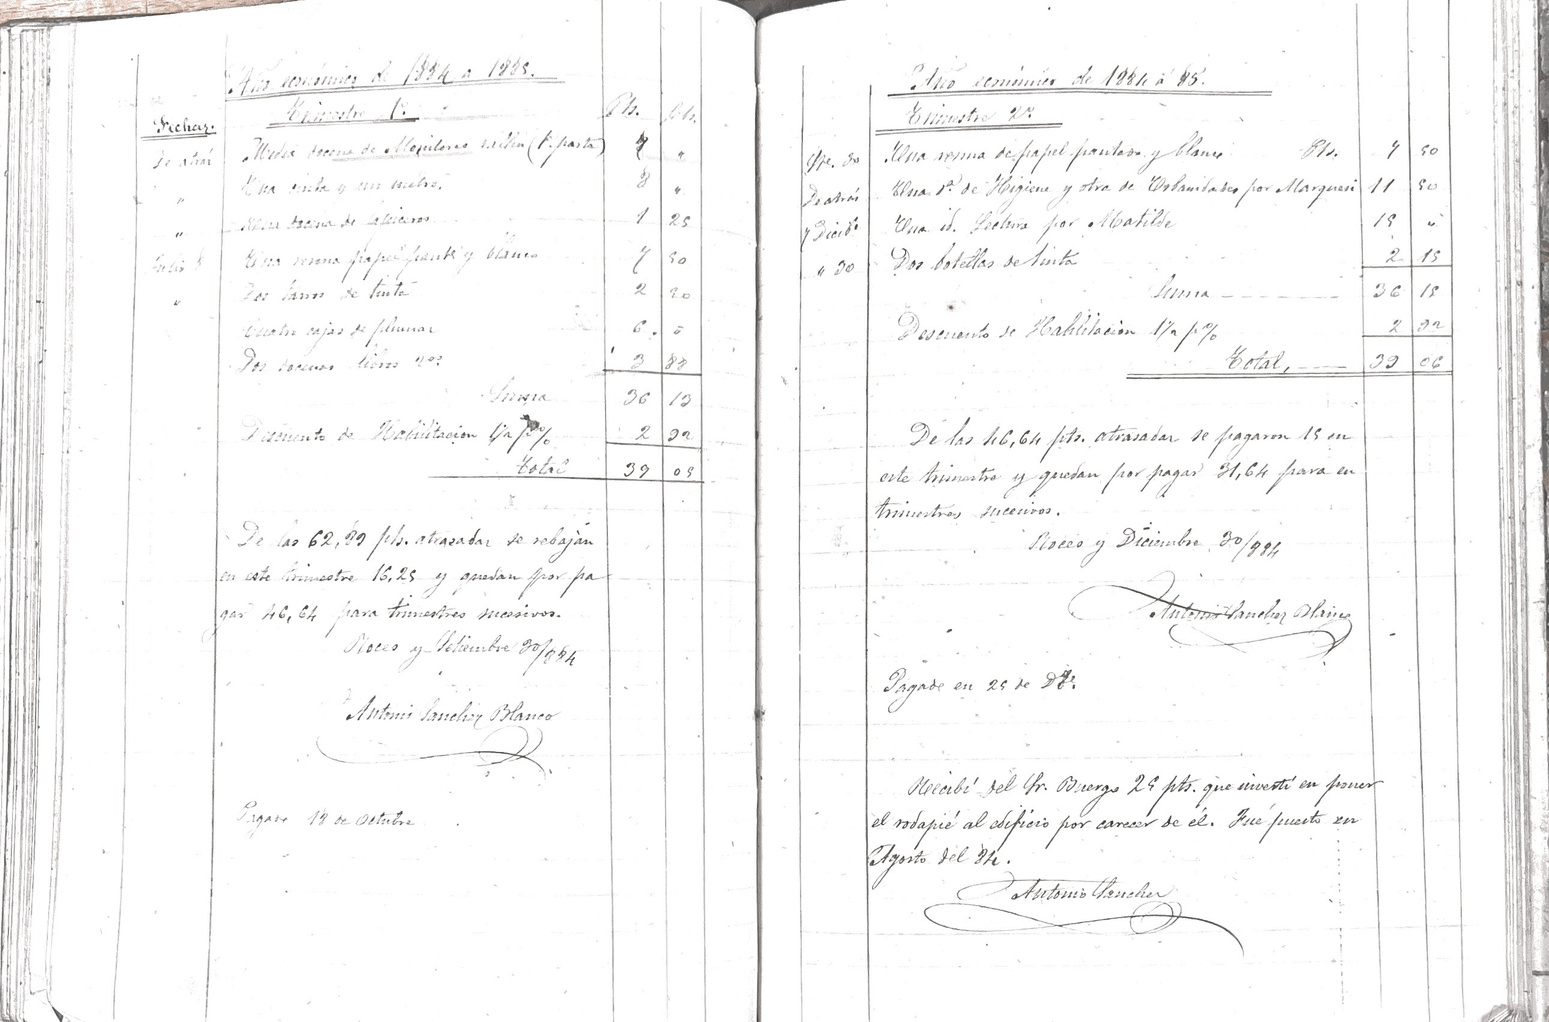 Año económico de 1884 a 1885.
Trimestre 1º
Fechas. Pts. Cts.
De atrás Media docena de (1ª parte) "
" Una cinta y un metro. 8 "
" Una docena de lapiceros 1 25
Julio Una resma papel paut. y blanco 7 50
" Dos tarros de tinta 2
Cuatro cajas de plumas 6.
Dos docenas libros 2ºs 3 88
Suma 36 13
Descuento de Habilitacion 1½ p% 2 92
Total 39 05
De las 62,89 pts. atrasadas se rebajan
en este trimestre 16,25 y quedan por pa
gar 46,64 para trimestres sucesivos.
Roces y Setiembre 30/884
Antonio Sanchez Blanco
Pagado 18 de Octubre
Año económico de 1884 á 85.
Trimestre 2º
30 Una resma de papel pautado y blanco Pts. 7 50
De atrás Una dª de Higiene y otra de Urbanidades por Marquesi 11 50
7 Dicibe Una id. Lectura por Matilde 15 "
" 30 Dos botellas de tinta 2 15
Suma 36 15
Descuento de Habilitacion 1½ p% 2 92
Total, 39 06
De las 46,64 pts. atrasadas se pagaron 15 en
este trimestre y quedan por pagar 31,64 para en
trimestres sucesivos.
Roces y Diciembre 30/884
Antonio Sanchez Blanco
Pagado en 25 de
Recibí del Sr. Buergo 25 pts. que invertí en poner
el rodapié al edificio por carecer de él. Fué puesto en
Agosto del 84.
Antonio Sanchez